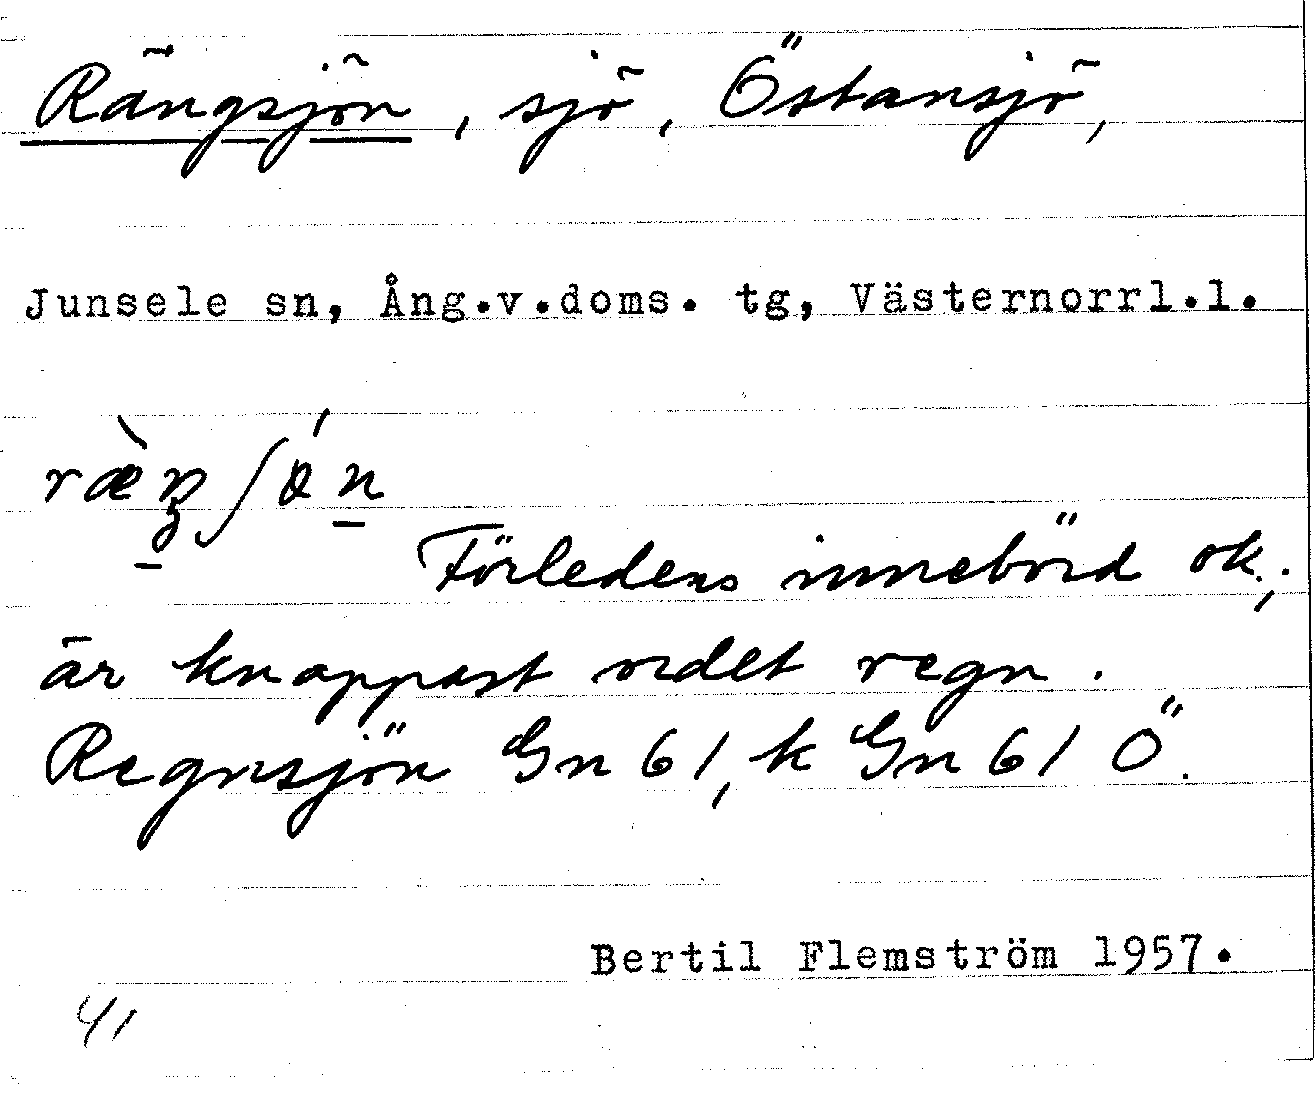 Rängsjön, sjö, Östansjö,
Junsele sn, Ång.v.doms. tg, Västernorrl.l.
Förledens innebörd ok.;
är knappast ordet regn.
Regnsjön Gn 61, k Gn 61 Ö.
Bertil Flemström 1957.
41